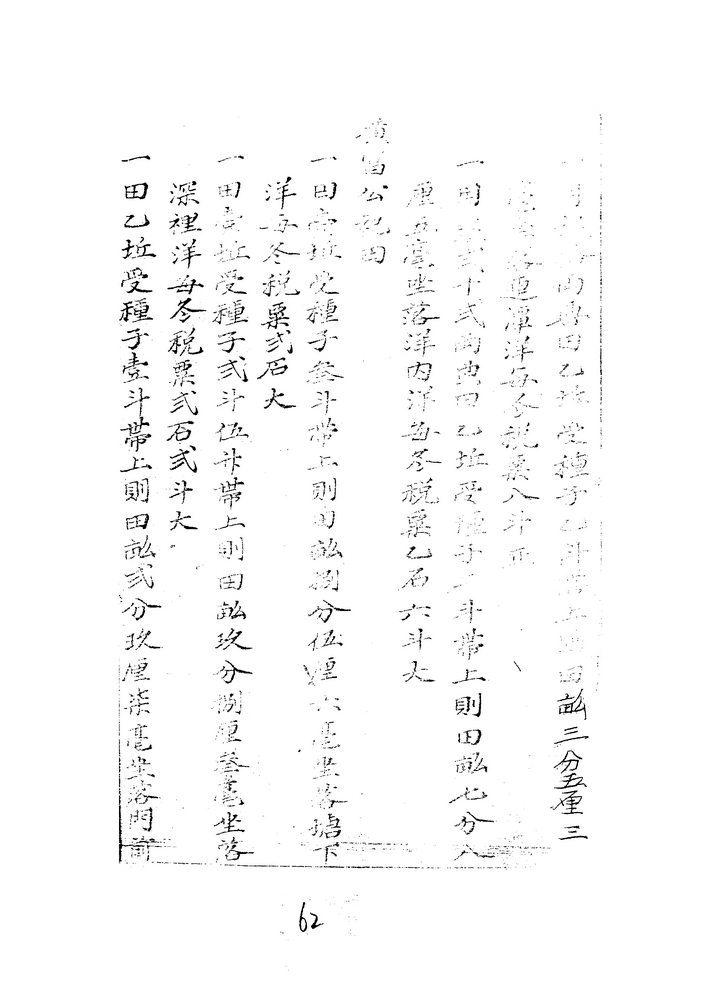 田乙坵受種子乙斗帶上則田畝三分五厘三
落 洋每冬稅粟八斗正
一田 弍十弍両典田乙坵受種子 斗帶上則田畝七分八
厘五毫坐落洋內洋每冬稅粟乙石六斗大
公記田
一田壹坵受種子叁斗帶上則田畝捌分伍厘六毫坐落塘下
洋每冬稅粟弍石大
一田壹坵受種子弍斗伍升帶上則田畝玖分捌厘叁毫坐落
深裡洋每冬稅粟弍石弍斗大
一田乙坵受種子壹斗帶上則田畝弍分玖厘柒毫坐落門前
62